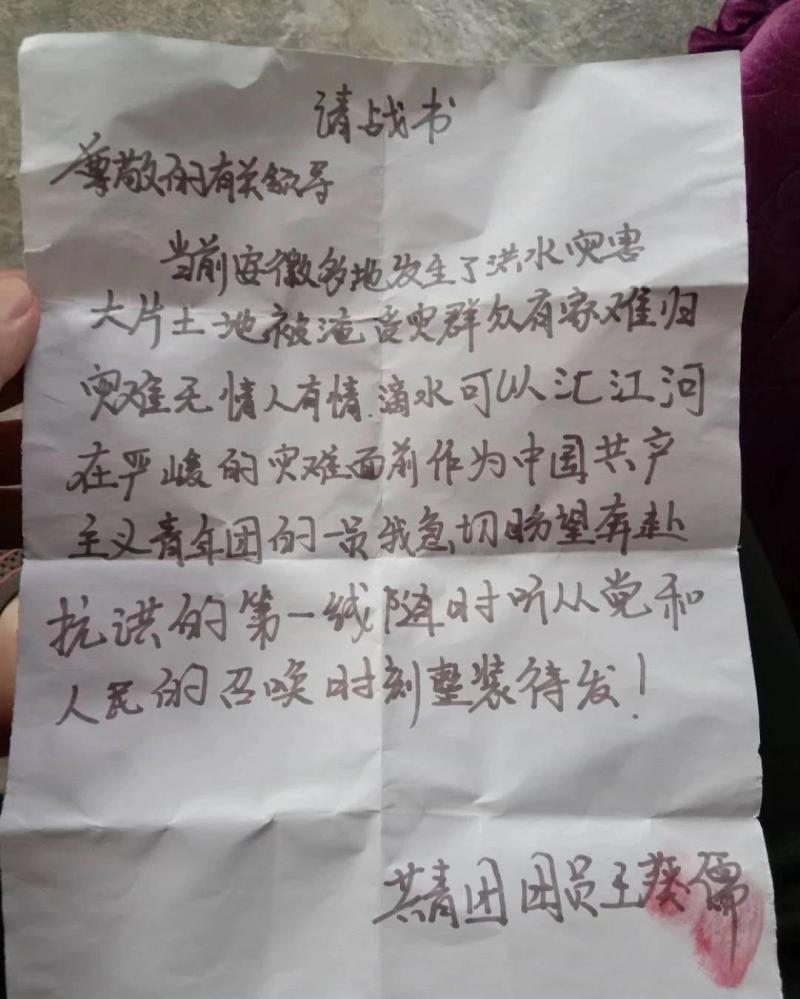 请战书
尊敬的有关领导
当前安徽多地发生了洪水灾害
大片土地被淹受灾群众有家难归
灾难无情人有情.滴水可以汇江河
在严峻的灾难面前作为中国共产
主义青年团的一员我急切盼望奔赴
抗洪的第一线随时听从党和
人民的召唤时刻整装待发!
共青团团员王葵儒